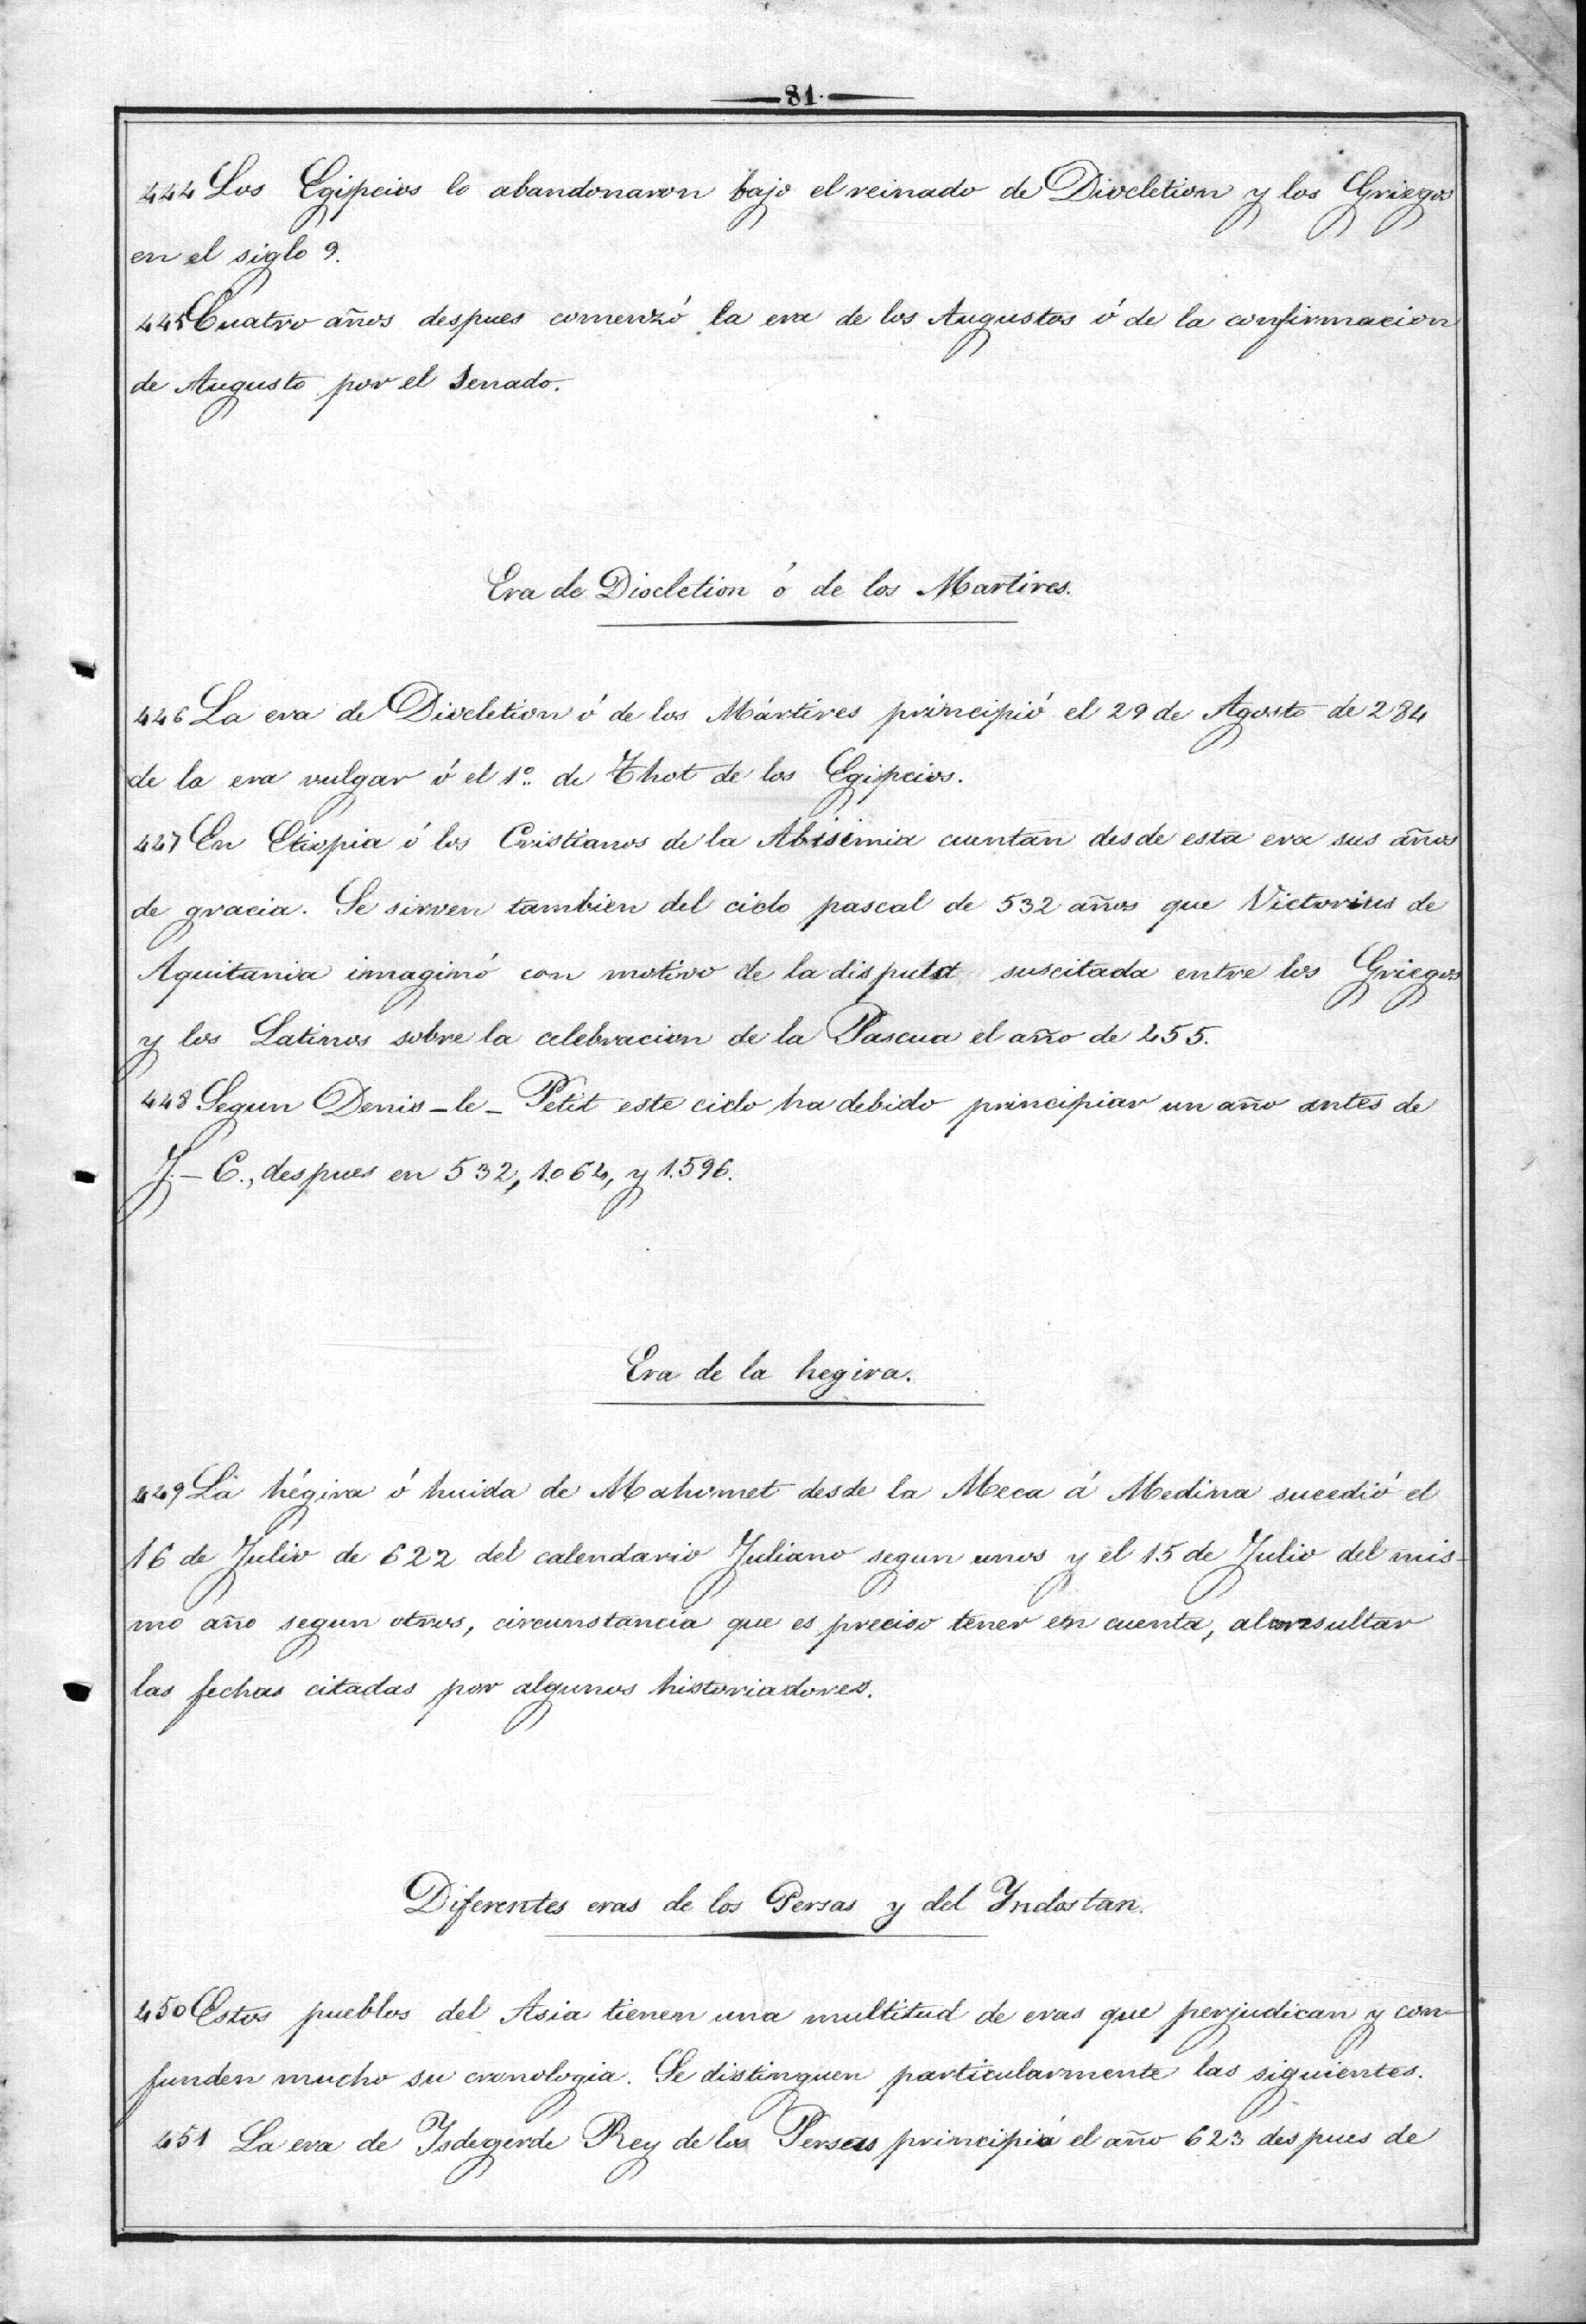 81.
444 Los Egipcios lo abandonaron bajo el reinado de Diocletion y los Griegos
en el siglo 9.
445 Cuatro años despues comenzó la era de los Augustos ó de la confirmacion
de Augusto por el Senado.
Era de Diocletion ó de los Martires.
446 La era de Diocletion ó de los Mártires principió el 29 de Agosto de 284
de la era vulgar ó el 1º. de Thot de los Egipcios.
447 En Etiopia ó los Cristianos de la Abisimia cuentan desde esta era sus años
de gracia. Se sirven tambien del ciclo pascal de 532 años que Victorius de
Aquitania imaginó con motivo de la disputa suscitada entre los Griegos
y los Latinos sobre la celebracion de la Pascua el año de 455.
448 Segun Denis-le-Petit este ciclo ha debido principiar un año antes de
J.-C., despues en 532, 1.064, y 1.596.
Era de la hegira.
449 La hégira ó huida de Mahomet desde la Meca á Medina sucedió el
16 de Julio de 622 del calendario Juliano segun unos y el 15 de Julio del mis-
mo año segun otros, circunstancia que es preciso tener en cuenta, al consultar
las fechas citadas por algunos historiadores.
Diferentes eras de los Persas y del Yndostan.
450 Estos pueblos del Asia tienen una multitud de eras que perjudican y con-
funden mucho su cronologia. Se distinguen particularmente las siguientes.
451 La era de Ysdegerde Rey de los Persas principió el año 623 despues de